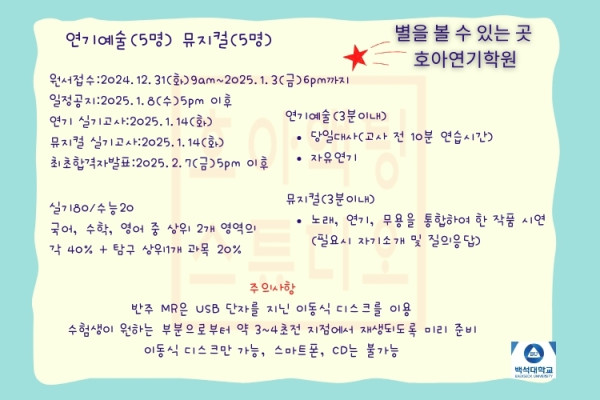 연기예술(5명) 뮤지컬(5명)
별을 볼 수 있는 곳
호아연기학원
원서접수:2024.12.31(화)9am~2025.1.3(금)6pm까지
일정공지:2025.1.8(수)5pm 이후
연기 실기고사:2025.1.14(화)
뮤지컬 실기고사:2025.1.14(화)
최초합격자발표:2025.2.7(금)5pm 이후
연기예술(3분이내)
• 당일대사(고사 전 10분 연습시간)
• 자유연기
실기80/수능20
국어, 수학, 영어 중 상위 2개 영역의
각 40% + 탐구 상위1개 과목 20%
뮤지컬(3분이내)
• 노래, 연기, 무용을 통합하여 한 작품 시연
(필요시 자기소개 및 질의응답)
주의사항
반주 MR은 USB 단자를 지닌 이동식 디스크를 이용
수험생이 원하는 부분으로부터 약 3~4초전 지점에서 재생되도록 미리 준비
이동식 디스크만 가능, 스마트폰, CD는 불가능
호아액팅
스튜디오
백석대학교
BAEKSEOK UNIVERSITY